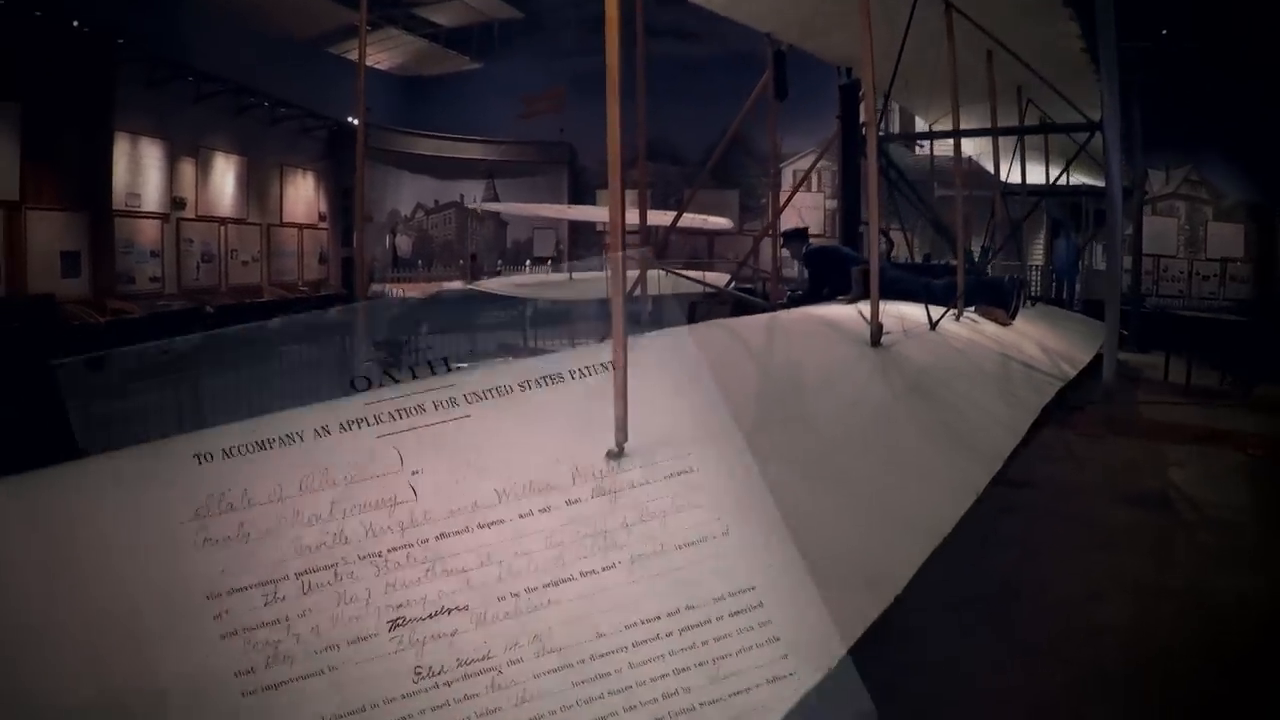 OATH
TO ACCOMPANY AN APPLICATION FOR UNITED STATES PATENT
State of Ohio ) ss:
County of Montgomery )
Orville Wright and Wilbur Wright
the above named petitioners, being sworn (or affirmed) depose and say that they are citizens
of The United States
and residents of No 7 Hawthorn St, in the City of Dayton
County of Montgomery and State of Ohio
that they verily believe themselves to be the original, first, and joint inventors of
the improvement in Flying Machines
Filed March
claimed in the annexed specifications that they do not know and do not believe
known or used before their invention or discovery thereof, or patented or described
before their invention or discovery thereof, or more than two
in the United States for more than two years prior to this
has been filed by
United States, except as follows